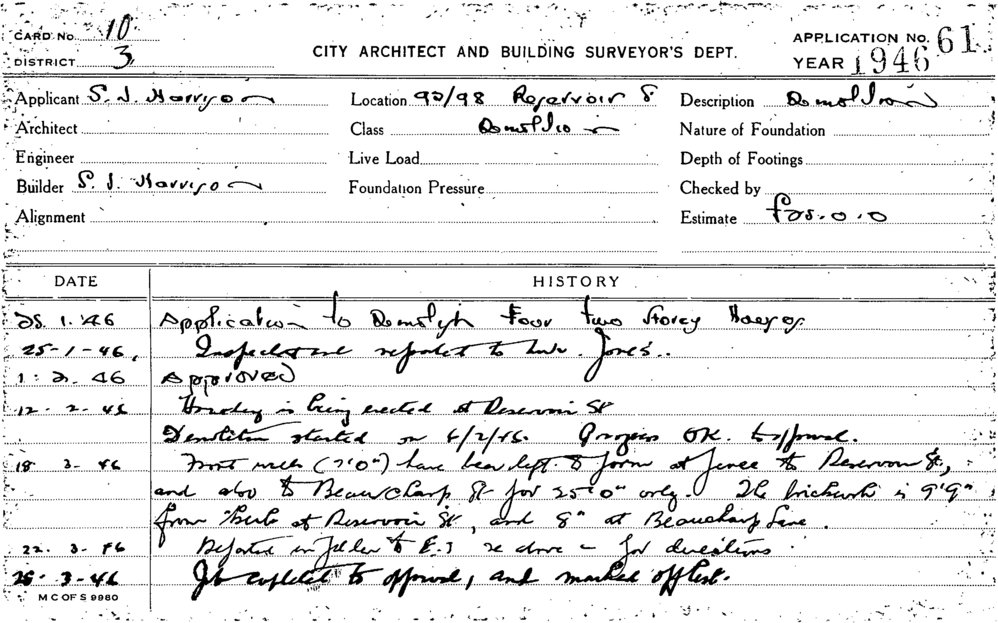 CARD No. 10
DISTRICT 3
CITY ARCHITECT AND BUILDING SURVEYOR'S DEPT.
APPLICATION No. 61
YEAR 1946
Applicant S. J. Harrison Location 92/98 Reservoir S Description Demolition
Architect Class Demolition Nature of Foundation
Engineer Live Load Depth of Footings
Builder S. J. Harrison Foundation Pressure Checked by
Alignment Estimate £25.0.0
DATE HISTORY
25. 1. 46 Application to Demolish Four two Storey Houses
25-1-46, Inspected and reported to Jones.
1. 2. 46 Approved
12. 2. 46 Hoarding is being erected at Reservoir St
Demolition started on 6/2/46. Progress OK. to approval.
18 3. 46 Front walls (7'0") have been left to form a fence to Reservoir St,
and also to Beauchamp St for 25'0" only. The brickwork is 9'9"
from kerb at Reservoir St, and 8" at Beauchamp Lane.
22. 3. 46 Reported in to E. J re above for directions
25. 3-46 Job completed to approval, and marked off list.
M C OF S 9980